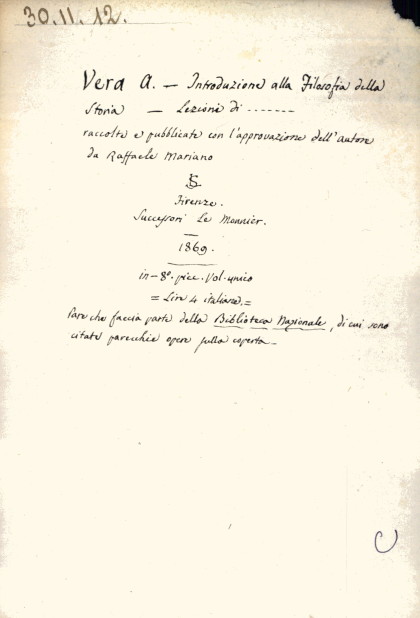 30.11.12.
Vera A. — Introduzione alla Filosofia della
Storia — Lezioni di -------
raccolte e pubblicate con l'approvazione dell'autore
da Raffaele Mariano
Firenze.
Successori Le Monnier.
1869.
in-8º. picc. Vol. unico
= Lire 4 italiane. =
Pare che faccia parte della Biblioteca Nazionale, di cui sono
citate parecchie opere sulla coperta.